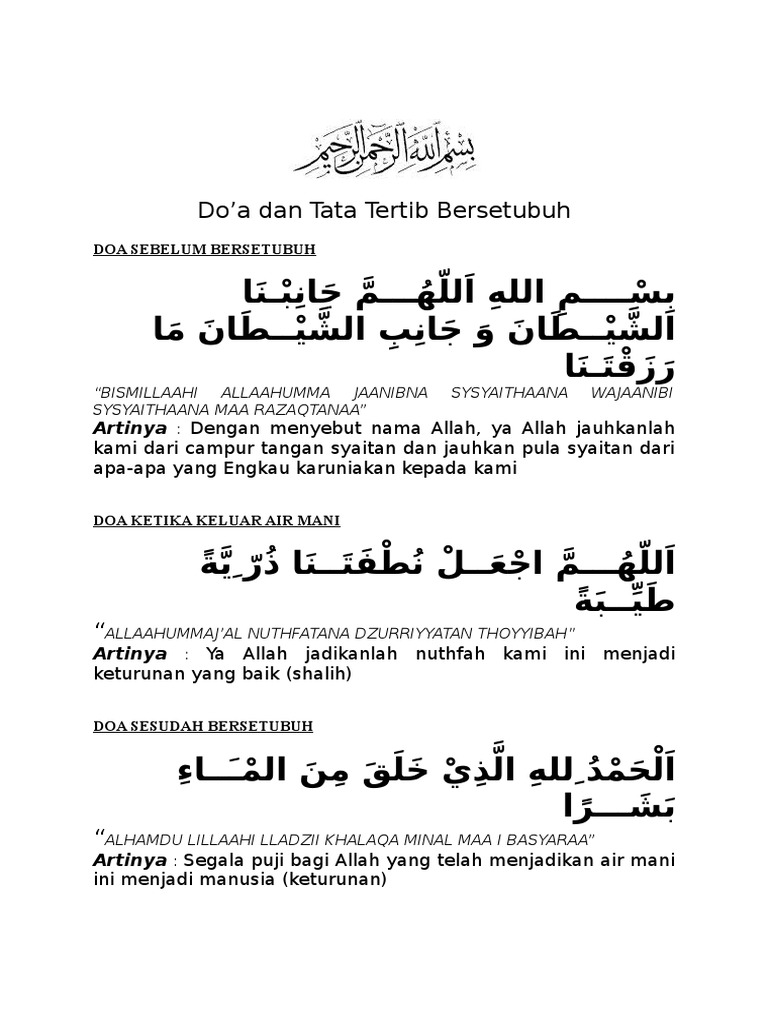 بِسْمِ اللهِ الرَّحْمٰنِ الرَّحِيْمِ
Do’a dan Tata Tertib Bersetubuh
DOA SEBELUM BERSETUBUH
بِسْــــمِ اللهِ اَللّٰهُـــمَّ جَانِبْـنَا
الشَّيْــطَانَ وَ جَانِبِ الشَّيْــطَانَ مَا
رَزَقْتَـنَا
“BISMILLAAHI ALLAAHUMMA JAANIBNA SYSYAITHAANA WAJAANIBI
SYSYAITHAANA MAA RAZAQTANAA”
Artinya : Dengan menyebut nama Allah, ya Allah jauhkanlah
kami dari campur tangan syaitan dan jauhkan pula syaitan dari
apa-apa yang Engkau karuniakan kepada kami
DOA KETIKA KELUAR AIR MANI
اَللّٰهُـــمَّ اجْعَــلْ نُطْفَتَــنَا ذُرِّيَّةً
طَيِّــبَةً
“ALLAAHUMMAJ’AL NUTHFATANA DZURRIYYATAN THOYYIBAH”
Artinya : Ya Allah jadikanlah nuthfah kami ini menjadi
keturunan yang baik (shalih)
DOA SESUDAH BERSETUBUH
اَلْحَمْدُ ِللهِ الَّذِيْ خَلَقَ مِنَ الْمَــاءِ
بَشَـــرًا
“ALHAMDU LILLAAHI LLADZII KHALAQA MINAL MAA I BASYARAA”
Artinya : Segala puji bagi Allah yang telah menjadikan air mani
ini menjadi manusia (keturunan)